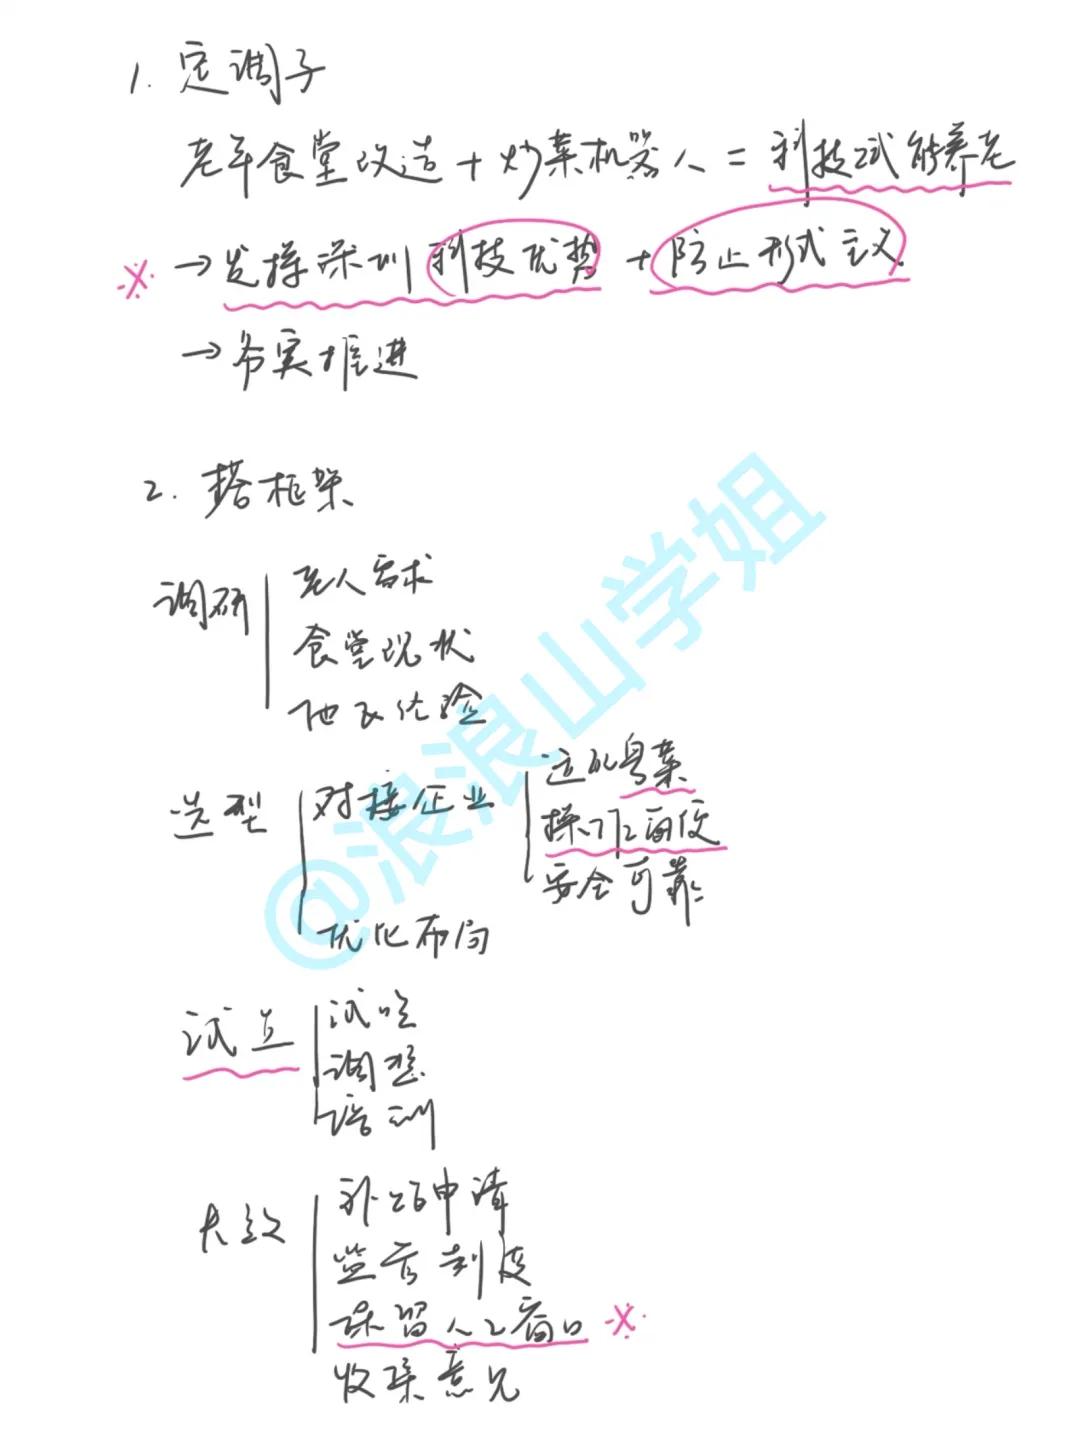 1. 定调子
老年食堂改造+炒菜机器人=科技赋能养老
※ →发挥深圳科技优势+防止形式主义
→务实推进
2. 搭框架
调研
老人需求
食堂现状
他区经验
选型
对接企业
适配粤菜
操作简便
安全可靠
优化布局
试点
试吃
调整
培训
长效
补贴申请
监管制度
保留人工窗口 ※
收集意见
@浪浪山学姐